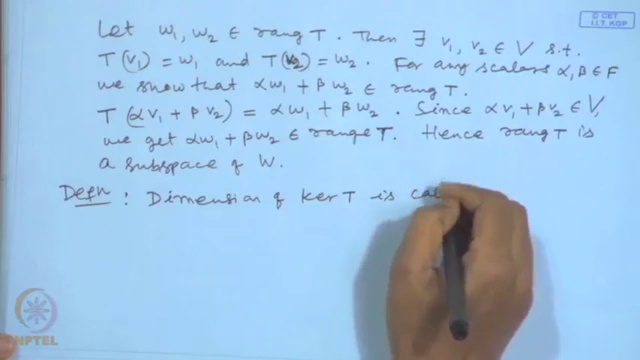 © CET
I.I.T. KGP
Let w₁, w₂ ∈ rang T. Then ∃ v₁, v₂ ∈ V s.t.
T(v₁) = w₁ and T(v₂) = w₂. For any scalars α, β ∈ F
we show that αw₁ + βw₂ ∈ rang T.
T(αv₁ + βv₂) = αw₁ + βw₂. Since αv₁ + βv₂ ∈ V,
we get αw₁ + βw₂ ∈ range T. Hence rang T is
a subspace of W.
Defn : Dimension of ker T is cal
NPTEL